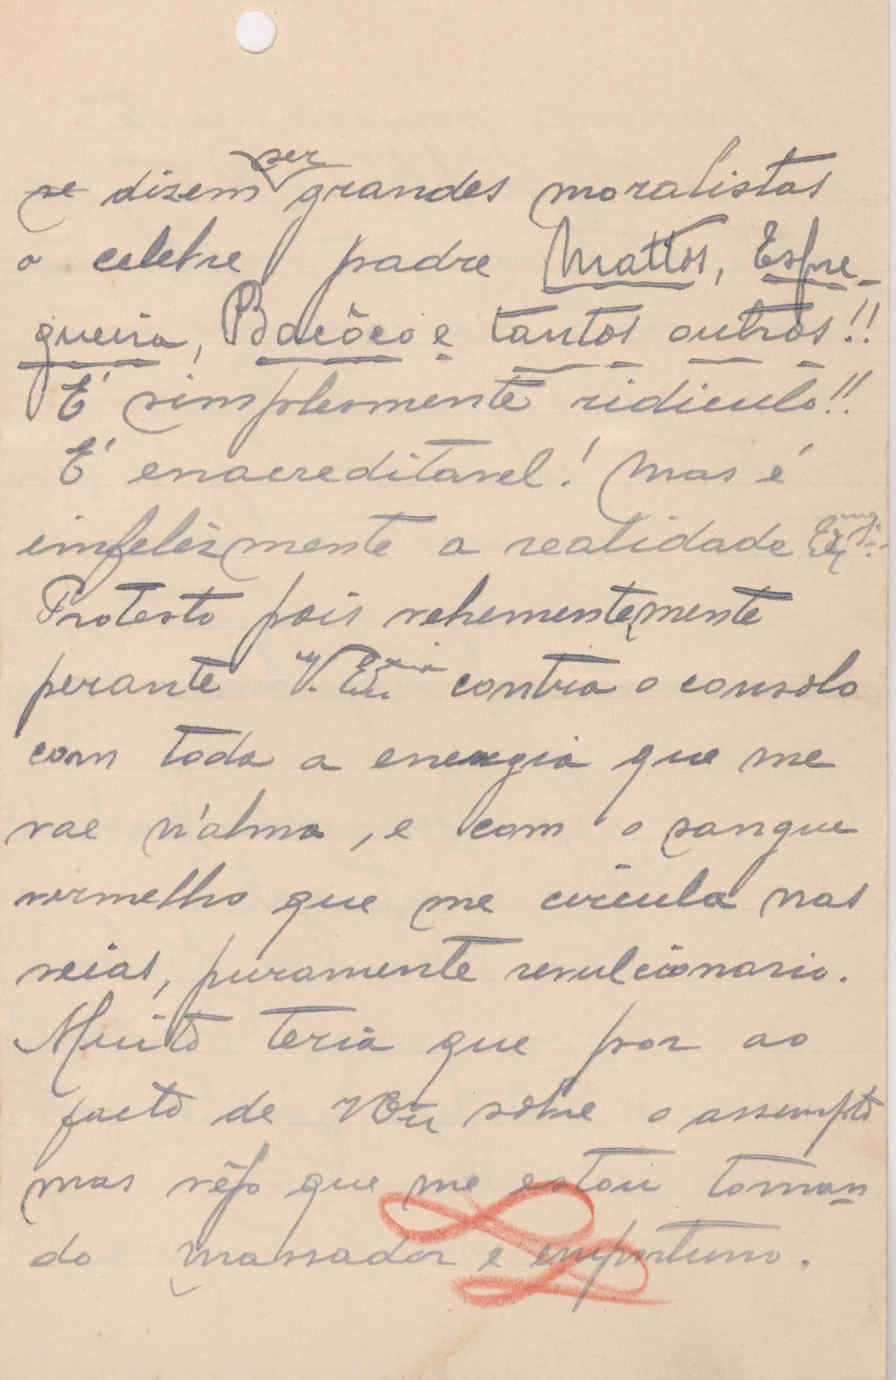 se dizem ser grandes moralistas
o celebre padre Mattos, Esfre-
gueira, Bacôco e tantos outros!!
É simplesmente ridiculo!!
É enacreditavel! Mas é
imfelèzmente a realidade Exmo Sr.
Protesto pois vehementemente
perante V. Exia contra o consolo
com toda a energia que me
vae n'alma, e com o sangue
vermelho que me circula nas
veias, puramente revulcionario.
Muito teria que por ao
facto de V Ex sobre o assumpto
mas vêjo que me estou toman
do massador e emportuno.